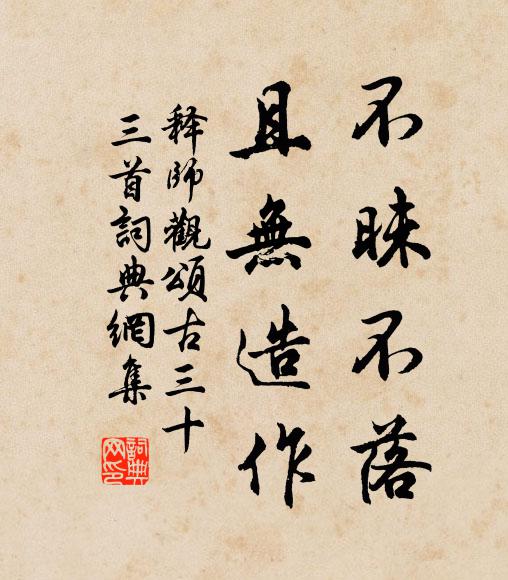 不昧不落
且無造作
释師觀頌古三十
三首詞典網集
詞典网印